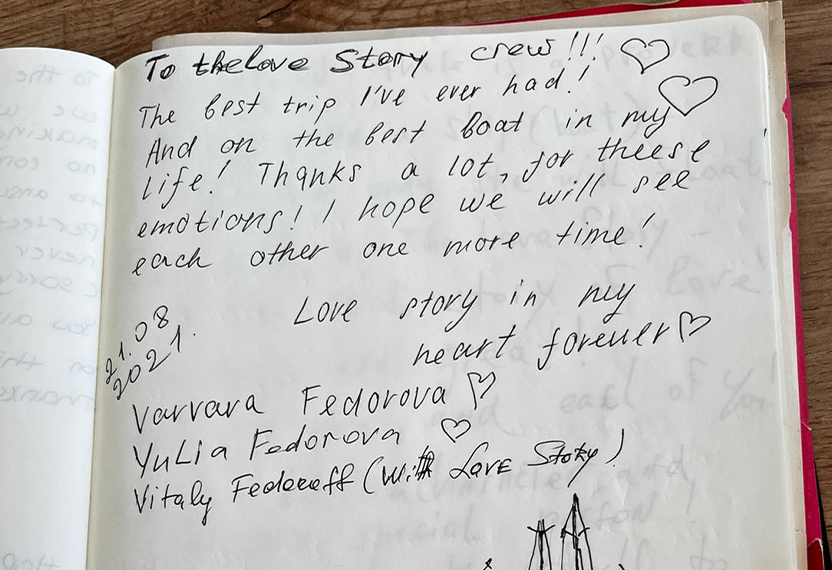 To the Love Story crew!!! ♡
The best trip I've ever had! ♡
And on the best boat in my
life! Thanks a lot, for theese
emotions! I hope we will see
each other one more time!
Love story in my
heart forever ♡
21.08
2021.
Varvara Fedorova ♡
YuLia Fedorova ♡
Vitaly Fedoroff (with Love Story)